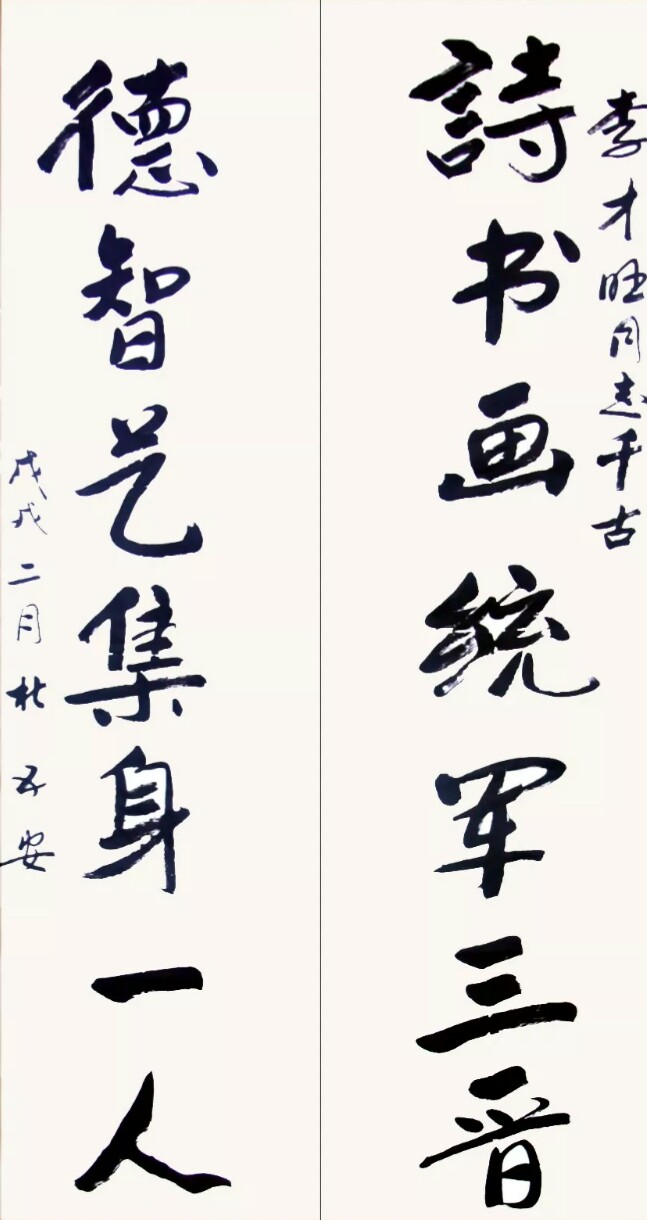 李才旺同志千古
詩书画统军三晋
德智艺集身一人
戊戌二月 杜五安